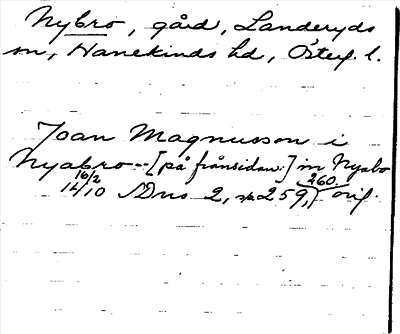 Nybro, gård, Landeryds
sn, Hanekinds hd, Österg. l.
Joan Magnusson i
Nyabro -- [på frånsidan:] in Nyabo
16/2 260
14/10 ADns 2, nr 259, orig.